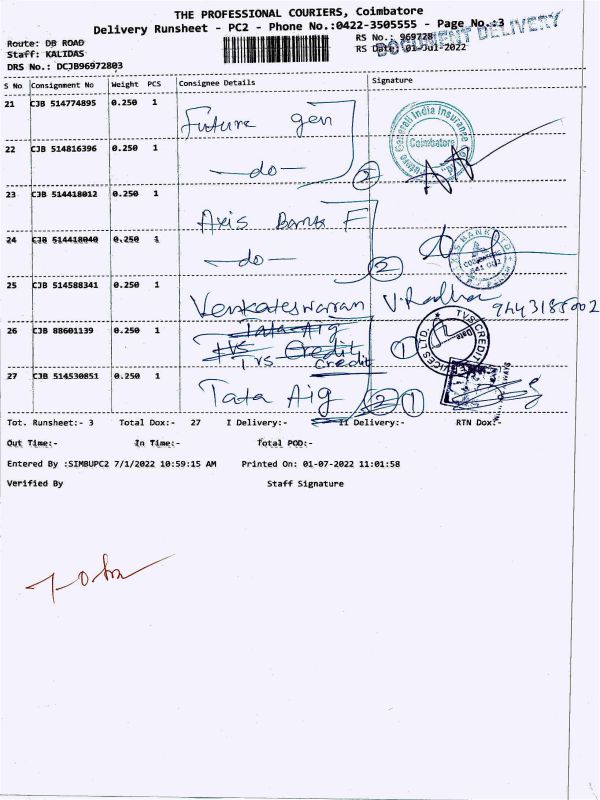 THE PROFESSIONAL COURIERS, Coimbatore
Delivery Runsheet - PC2 - Phone No.:0422-3505555 - Page No.:3
DOCUMENT DELIVERY
Route: DB ROAD
RS No.: 969728
Staff: KALIDAS
RS Date: 01-Jul-2022
DRS No.: DCJB96972803
S No Consignment No Weight PCS Consignee Details Signature
21 CJB 514774895 0.250 1 Future gen
Generali India Insurance
Coimbatore
22 CJB 514816396 0.250 1 -do- 2
23 CJB 514418012 0.250 1 Axis Bank F
24 CJB 514418040 0.250 1 -do- 2
AXIS BANK LTD
25 CJB 514588341 0.250 1 Venkateswaran V. Radha
26 CJB 88601139 0.250 1 Tata Aig
TVS Credit
Tvs credit 1
TVS CREDIT SERVICES LTD.
Date
27 CJB 514530851 0.250 1 Tata Aig 2 1
Tot. Runsheet:- 3 Total Dox:- 27 I Delivery:- II Delivery:- RTN Dox:-
Out Time:- In Time:- Total POD:-
Entered By :SIMBUPC2 7/1/2022 10:59:15 AM Printed On: 01-07-2022 11:01:58
Verified By Staff Signature